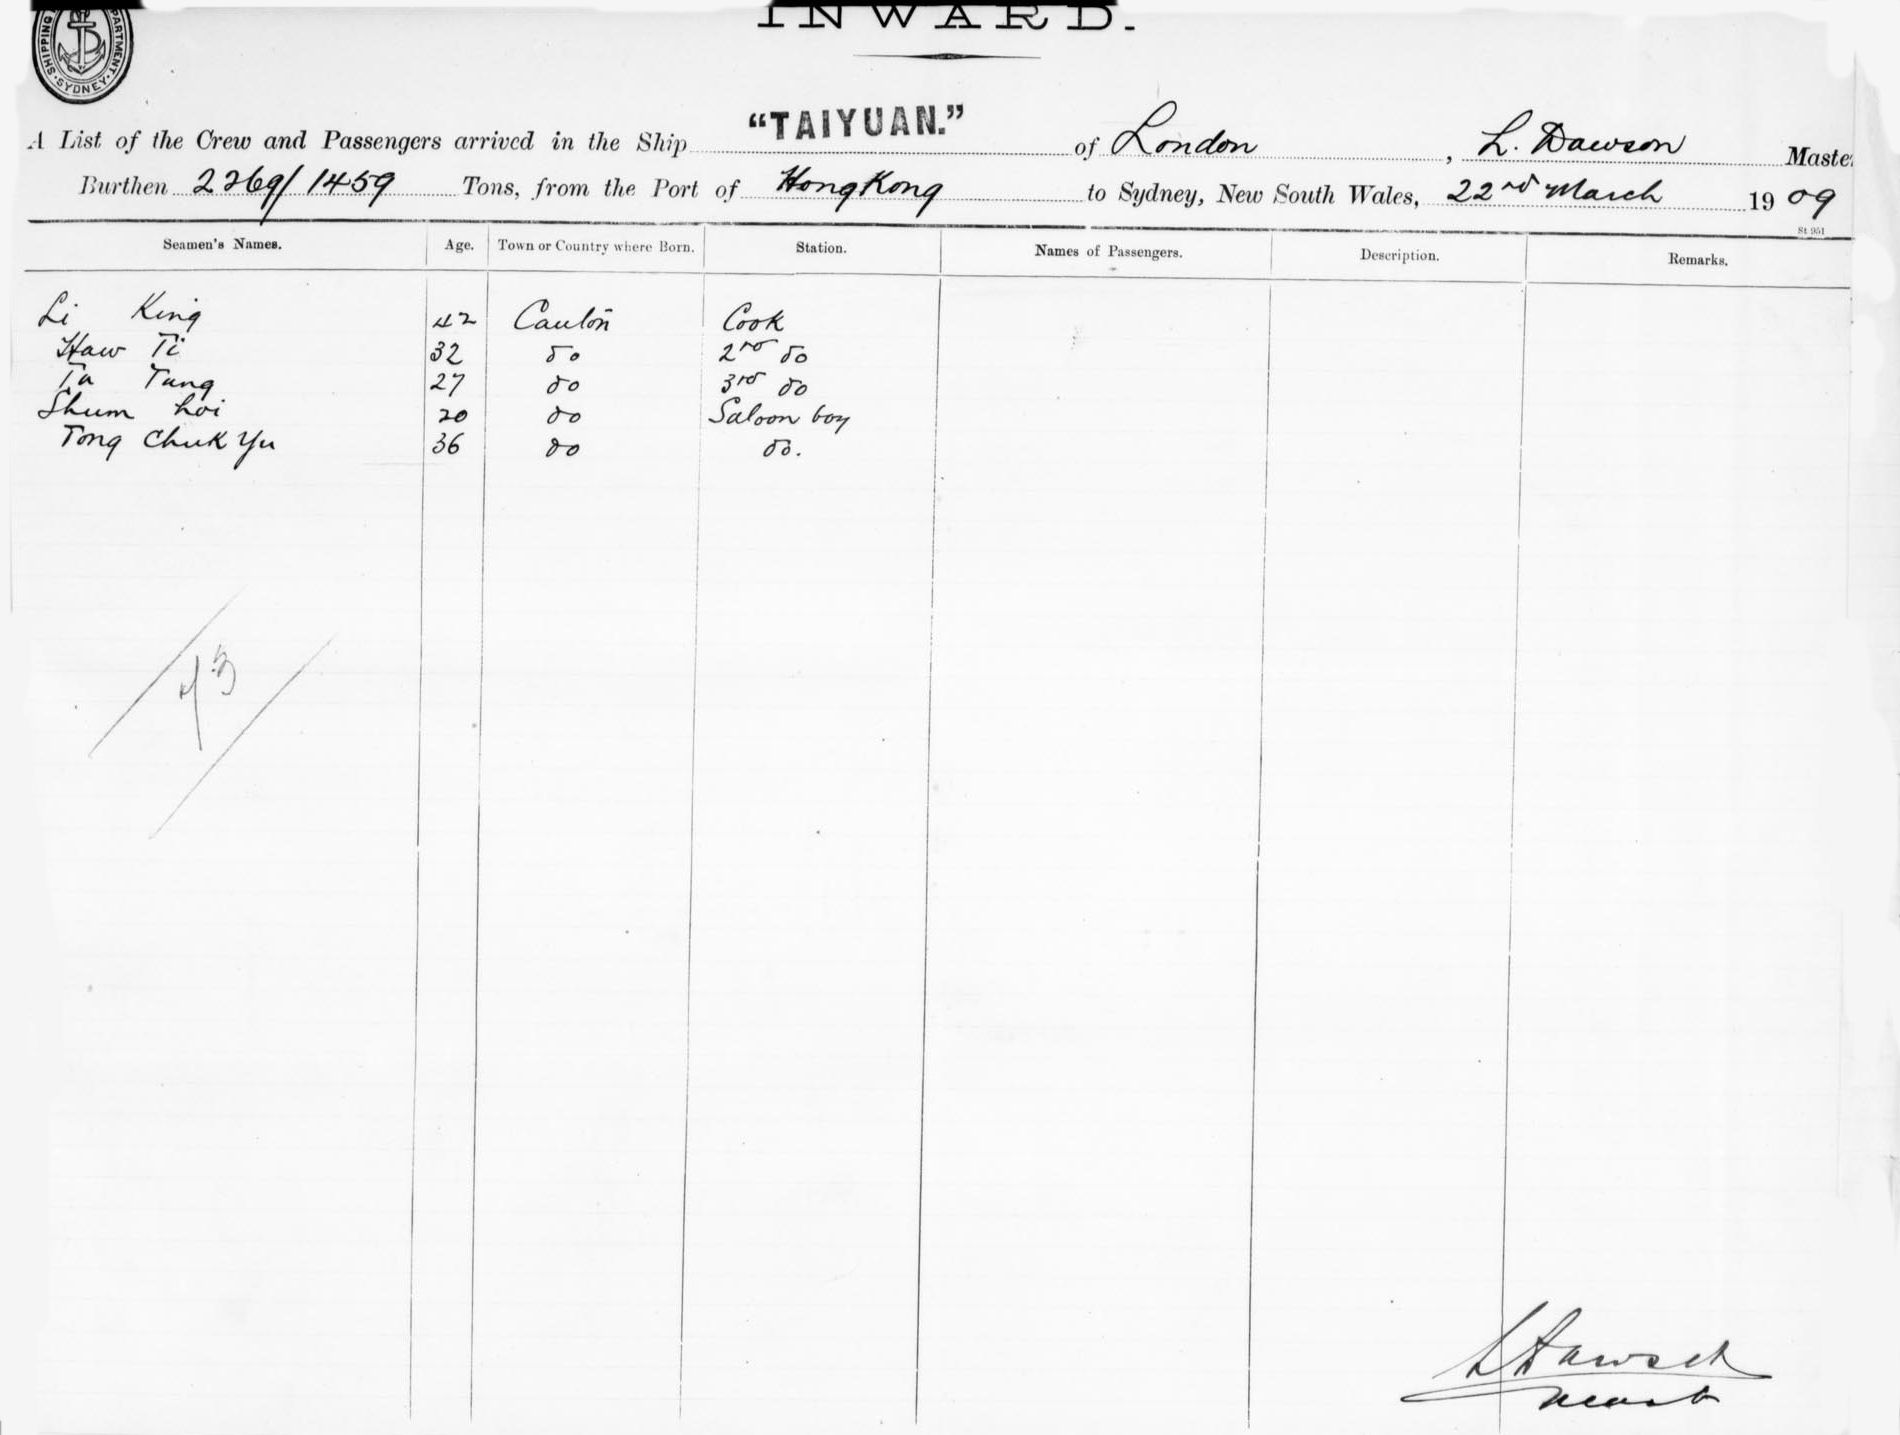 INWARD.
SHIPPING DEPARTMENT SYDNEY
A List of the Crew and Passengers arrived in the Ship "TAIYUAN." of London, L. Dawson Master
Burthen 2269/1459 Tons, from the Port of HongKong to Sydney, New South Wales, 22nd March 1909
St 951
Seamen's Names. Age. Town or Country where Born. Station. Names of Passengers. Description. Remarks.
Li King 42 Canton Cook
Haw Ti 32 do 2nd do
Ta Tung 27 do 3rd do
Shum hoi 20 do Saloon boy
Tong Chuk Yu 36 do do.
73
L Dawson
Master